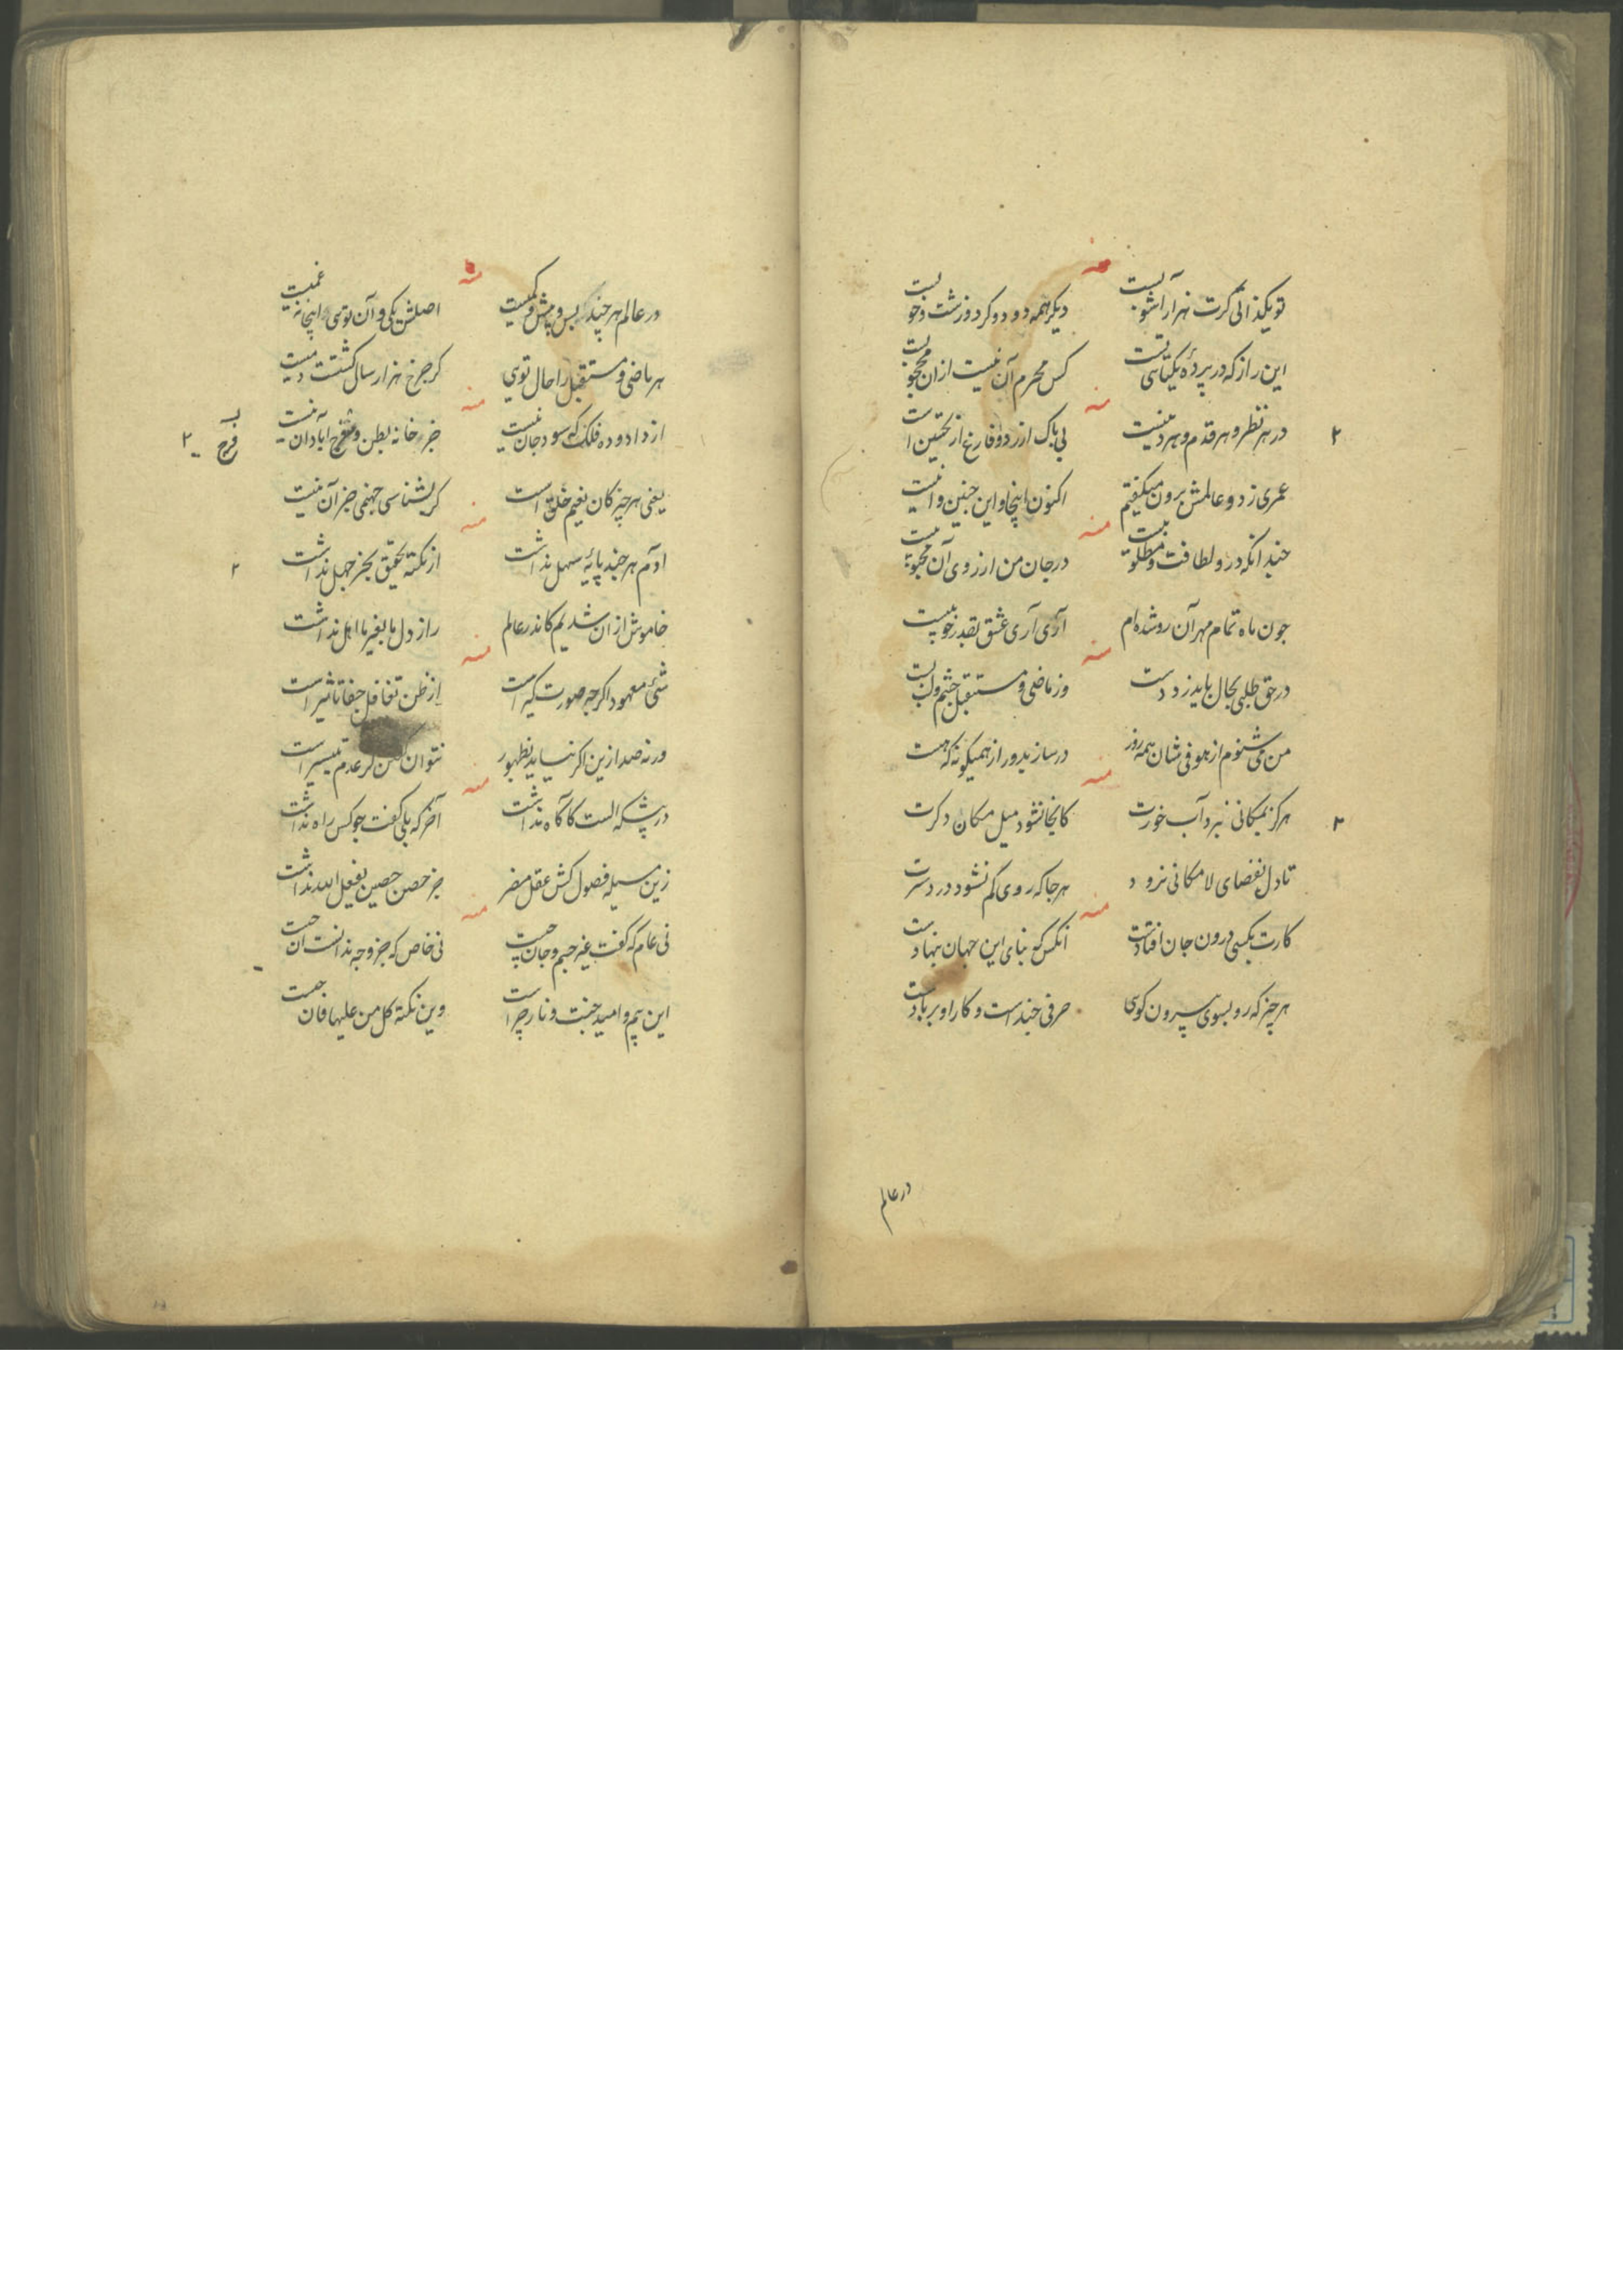 تو یکذاتی کرت هزار آشوبیست دیکر همه دو دو کرد و زشت و خوبیست
این راز که در پردهٔ یکتائی تست کس محرم آن نیست ازان محجوبیست
در هر نظر و هر قدم و هر دینیست بی باک از رد و فارغ از تحسین است
عمری ز دو عالمش برون میکفتیم اکنون اینجا و این جنین و انیست
جندانکه درو لطافت و مطلوبیست در جان من ارزوی آن محبوبیست
جون ماه تمام مهر آن رو شده ام آری آری عشق بقدر خوبیست
در حق طلبی بحال باید زد دست وز ماضی و مستقبل جشم و لب بست
من می شنوم از هو فی شان همه روز در ساز بدور از همیکونه که هست
هرکز نمکانی نبرد آب خورت کانجا نشود میل مکان دکرت
تا دل بفضای لامکانی نرود هر جا که روی کم نشود درد سرت
کارت بکسی درون جان افتادست انکس کو بنای این جهان بنهادست
هر چیز که رو بسوی بیرون کوئی حرفی جند است و کار او بر بادست
در عالم
در عالم هر جند بس و بیش و کمیست اصلش یکی و آن توئی اینجا نه غمیست
هر ماضی و مستقبل را حال توئی کر جرخ هزار سال کشتست دمیست
از داد و ده فلک که سود جان نیست جز خانه بطن و فرج آبادان نیست
یعنی هر چیز کان نعیم خلق است کر بشناسی جهنمی جز آن نیست
آدم هر جند پایهٔ سهل نداشت از نکته تحقیق بجز جهل نداشت
خاموش ازان شدیم کاندر عالم راز دل ما بغیر ما اهل نداشت
شئ معهود اکرجه صورت کیر است از ظن تغافل جفا تاثیر است
ورنه صد ازین اکر نیاید بظهور نتوان کفتن کز عدم تیسیر است
در پیشکه الست کاکاه نداشت آخر که بلی کفت جو کس راه نداشت
زین مسیله فضول کش عقل مضر جز حصن حصین یفعل الله نداشت
نی عام که کفت غیر جسم و جان جیست نی خاص که جز وجه ندانست آن جیست
این بیم و امید جنت و نار چراست وین نکته کل من علیها فان جیست